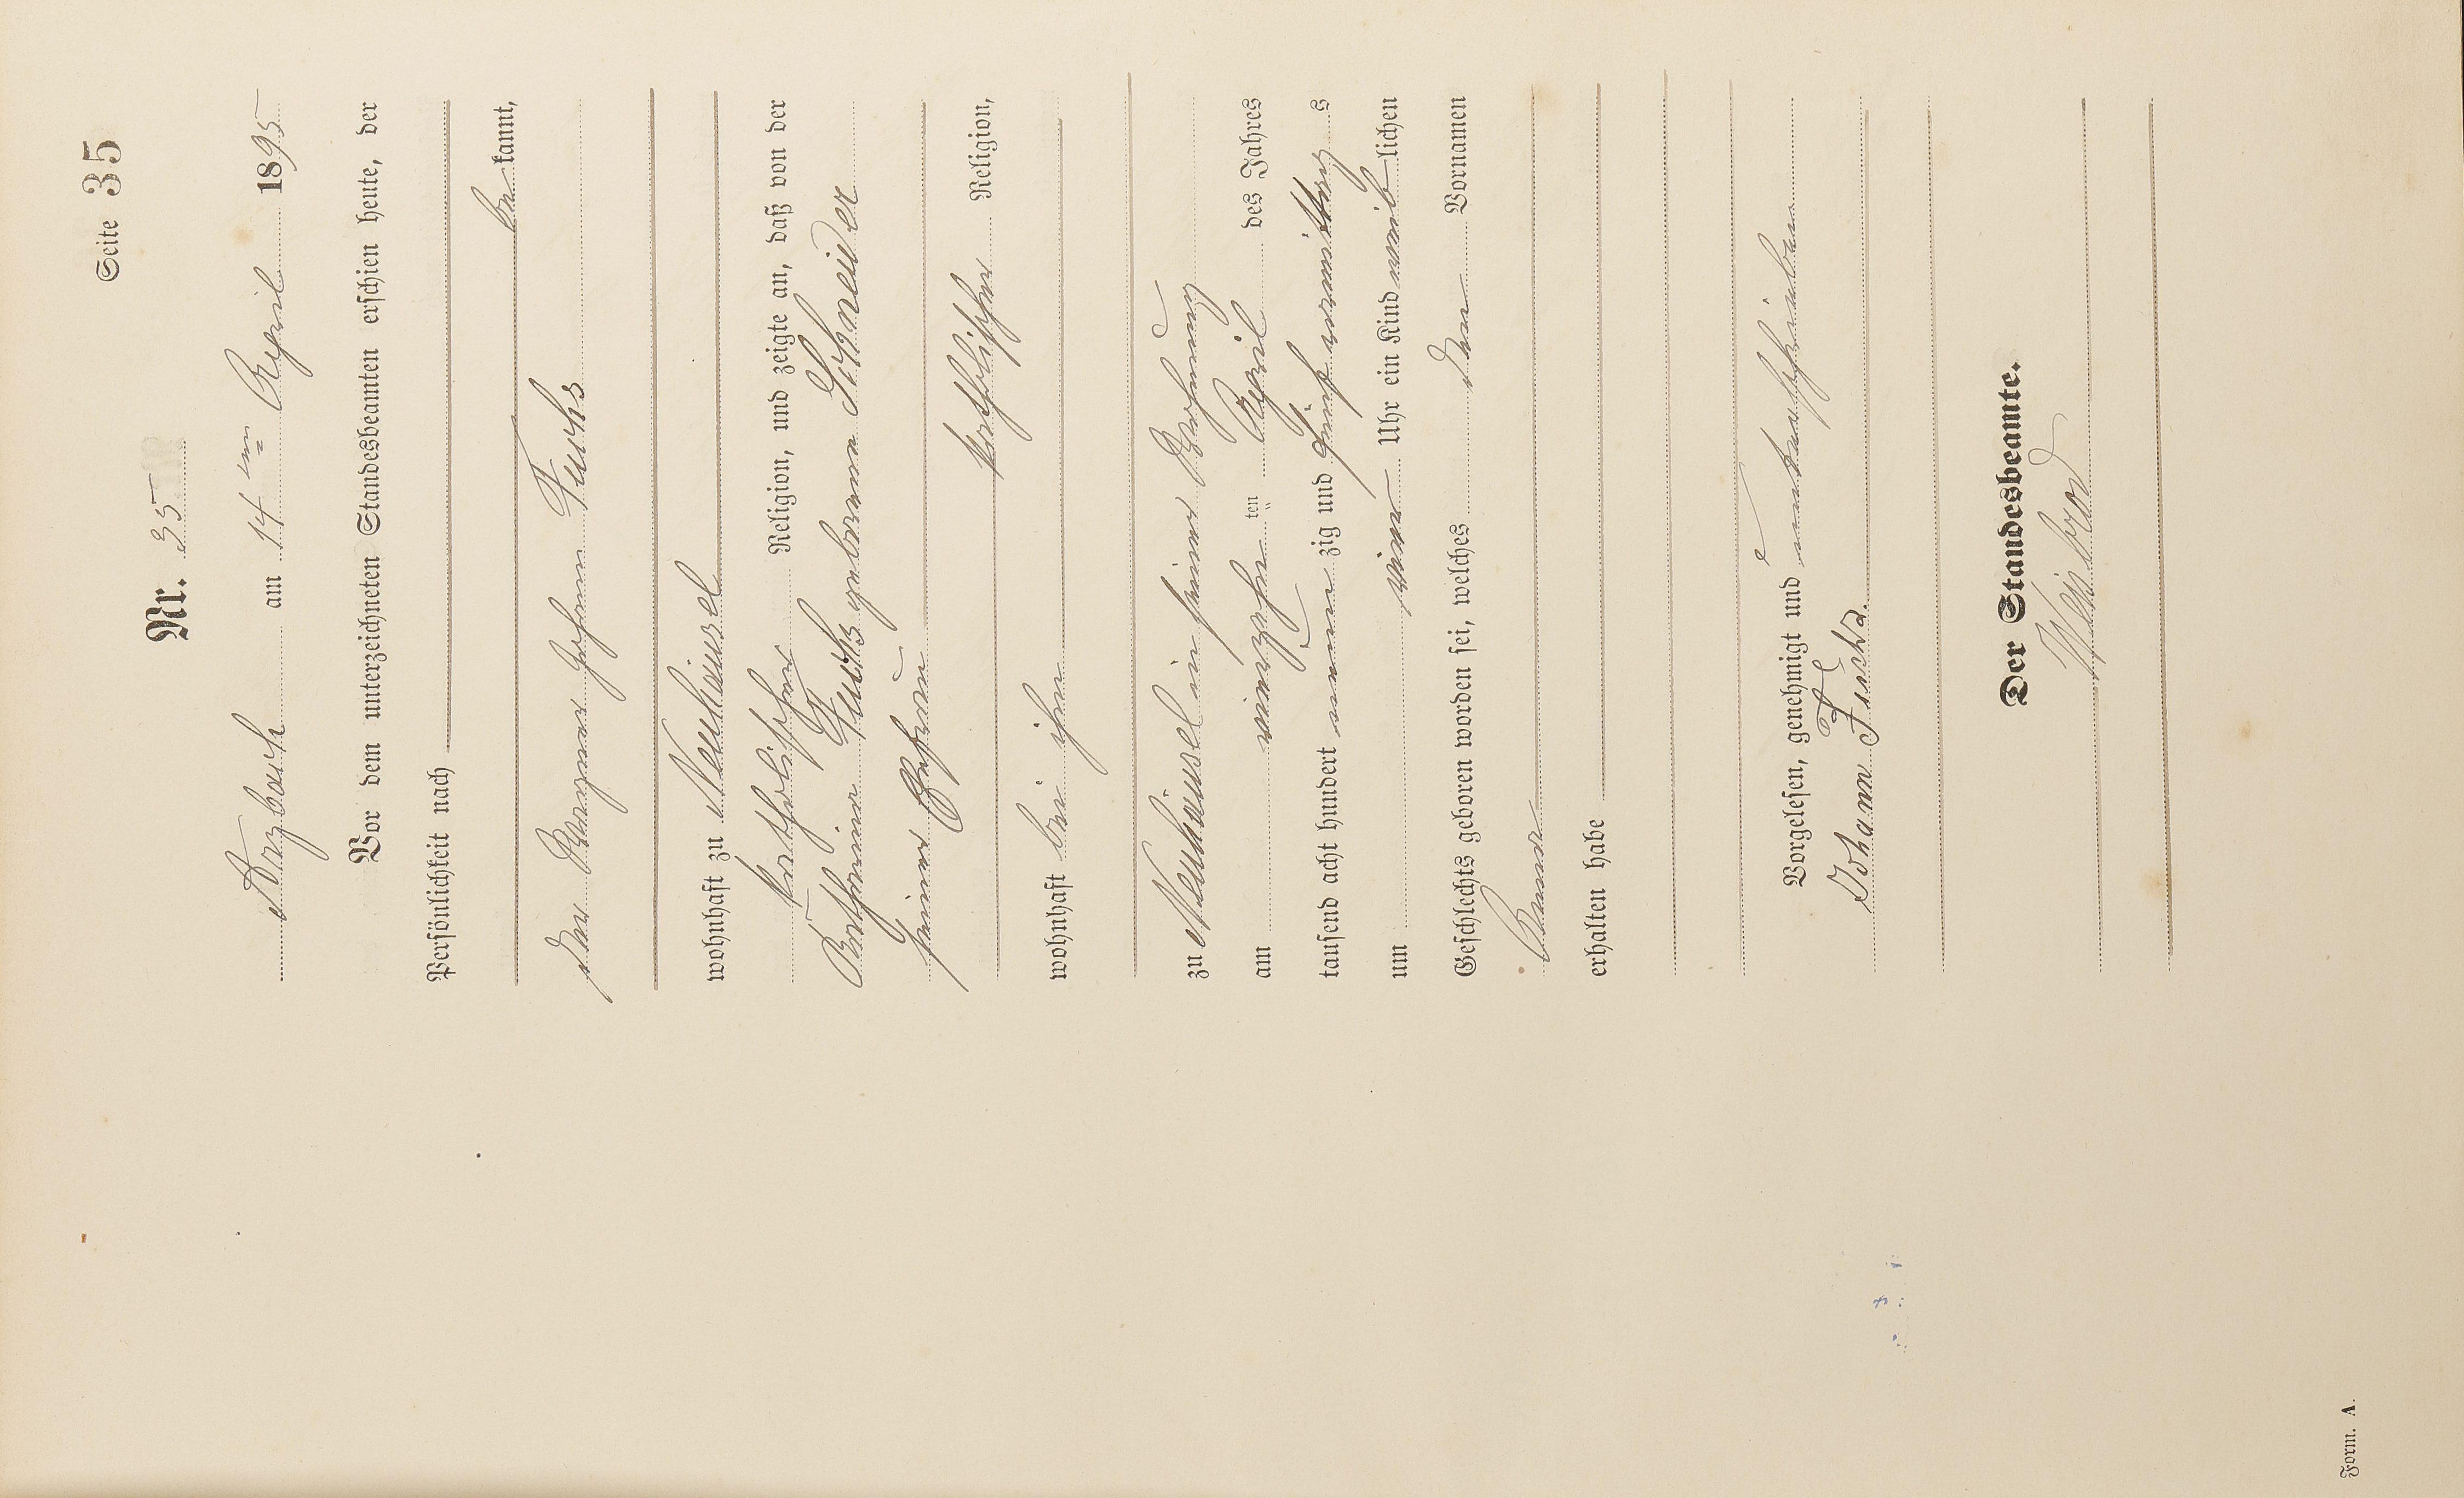 Seite 35
Nr. 35
Arzbach am 14ten April 1895
Vor dem unterzeichneten Standesbeamten erschien heute, der
Persönlichkeit nach
be kannt,
der Bergmann Johann Fuchs
wohnhaft zu Neuhäusel
katholischer Religion, und zeigte an, daß von der
Katharina Fuchs geborene Schneider
seiner Ehefrau
katholischer Religion,
wohnhaft bei ihm
zu Neuhäusel in seiner Wohnung
am vierzehn ten April des Jahres
tausend acht hundert neun zig und fünf vormittags
um vier Uhr ein Kind weib lichen
Geschlechts geboren worden sei, welches den Vornamen
Anna
erhalten habe
Vorgelesen, genehmigt und unterschrieben
Johann Fuchs.
Der Standesbeamte.
Form. A.